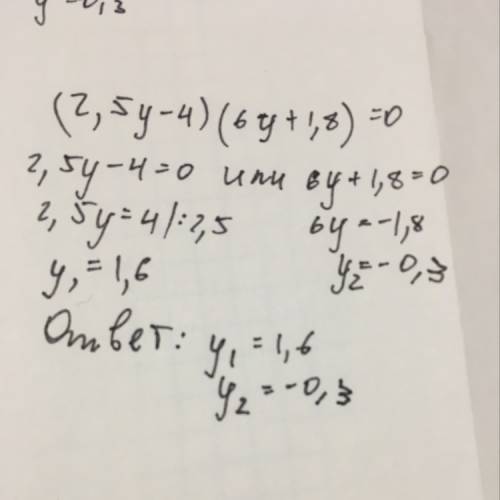 y -0,3
(2,5y-4)(6y+1,8)=0
2,5y-4=0 или 6y+1,8=0
2,5y=4/:2,5 6y=-1,8
y₁=1,6 y₂=-0,3
Ответ: y₁=1,6
y₂=-0,3